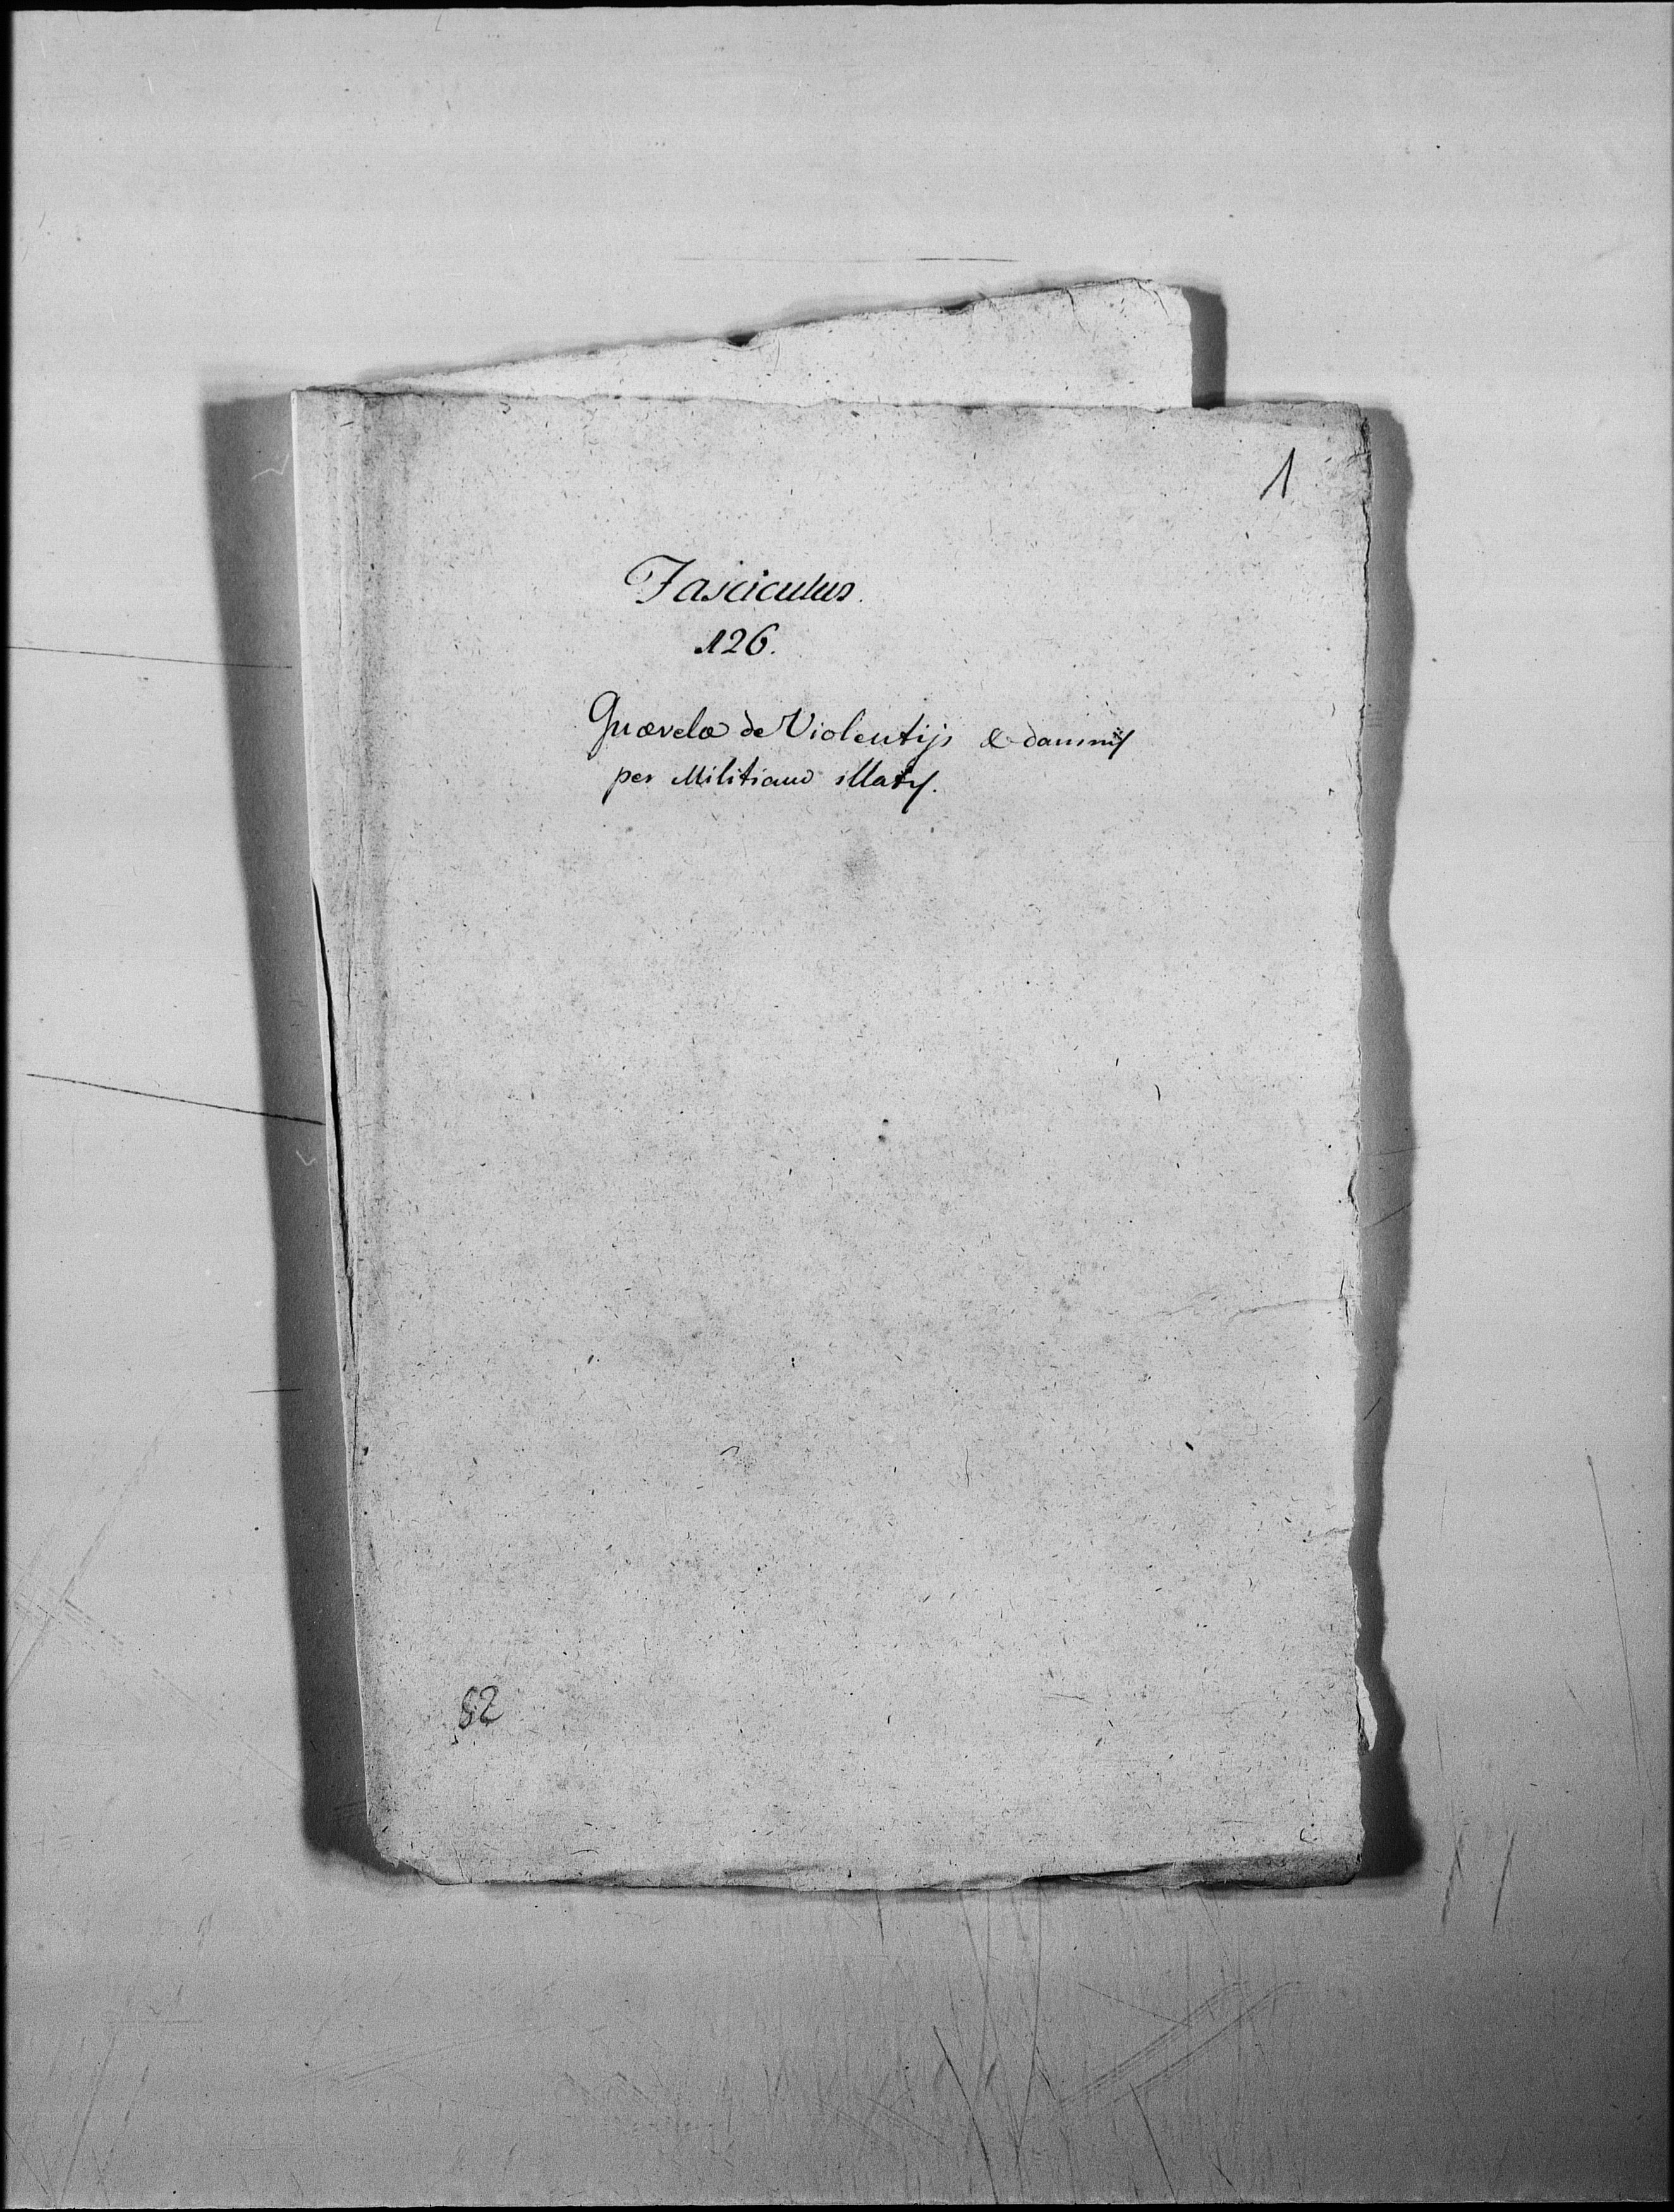 1
Fasciculus.
126.
Quærelæ de Violentijs & damnis
per Militiam illatis.
82